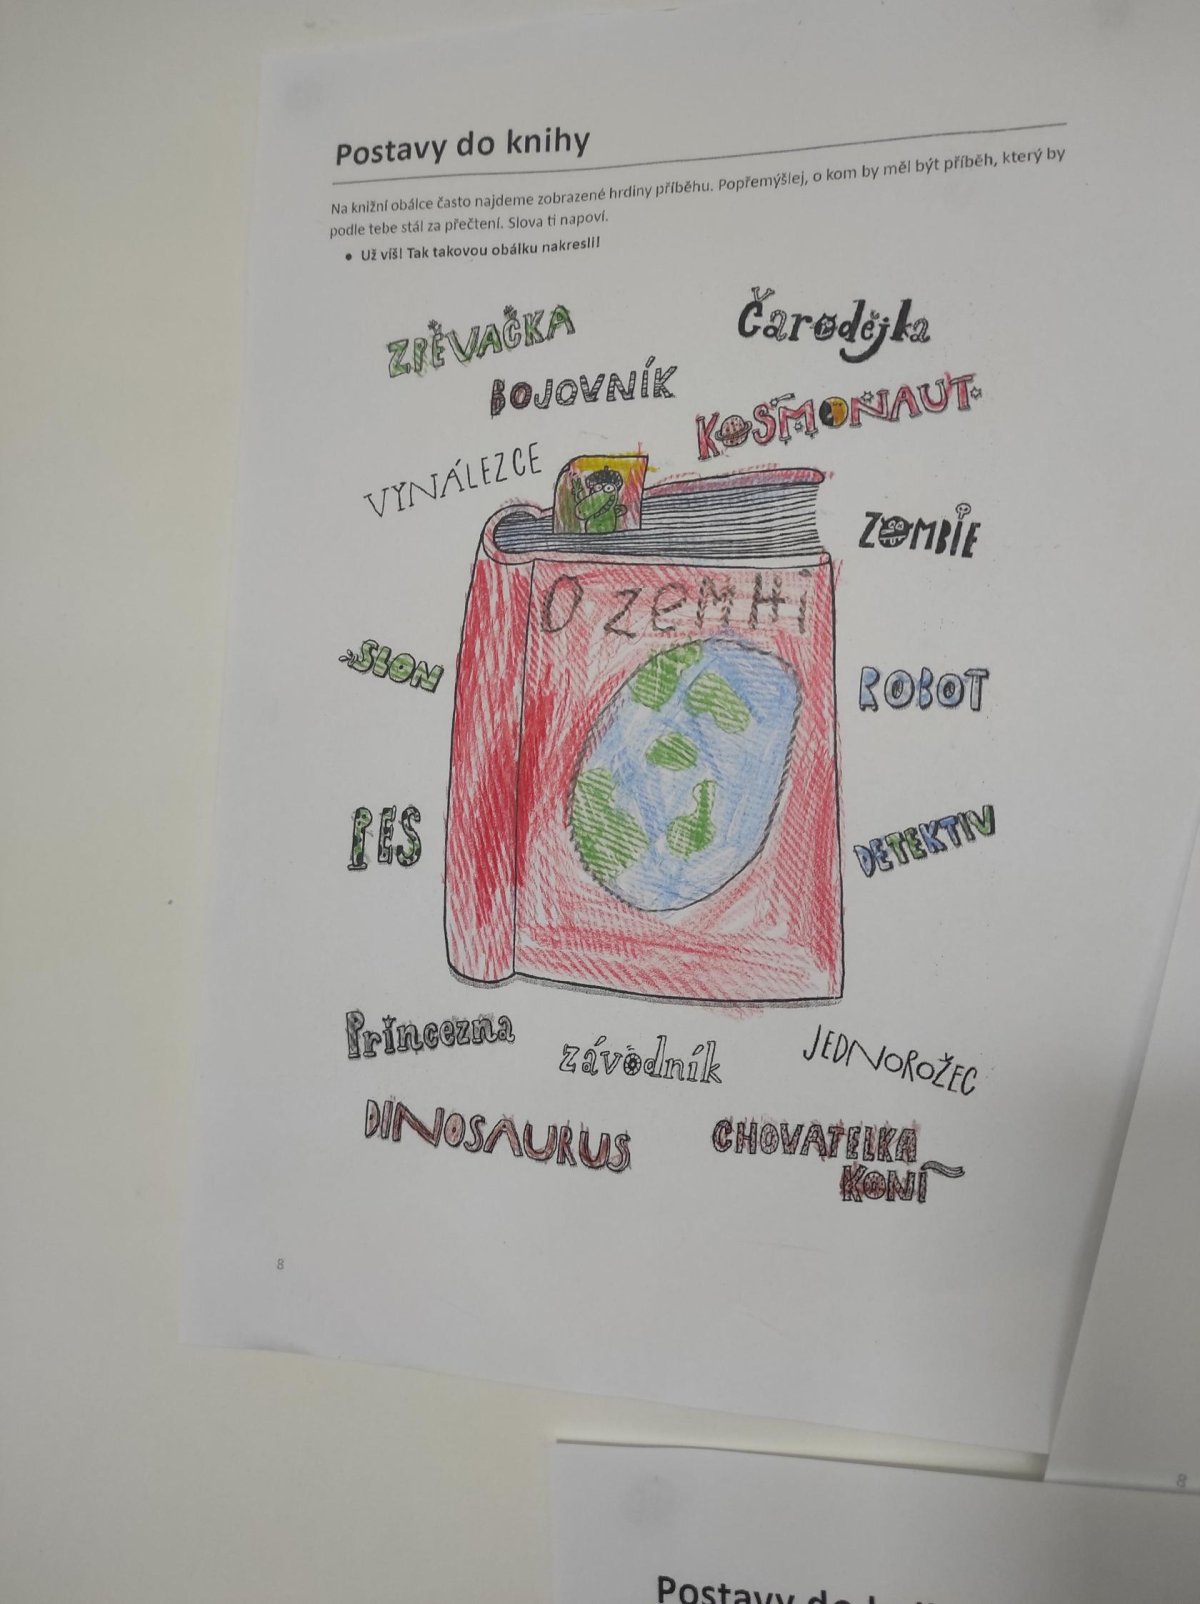 Postavy do knihy
Na knižní obálce často najdeme zobrazené hrdiny příběhu. Popřemýšlej, o kom by měl být příběh, který by
podle tebe stál za přečtení. Slova ti napoví.
• Už víš! Tak takovou obálku nakresli!
ZPĚVAČKA
Čarodějka
BOJOVNÍK
KOSMONAUT
VYNÁLEZCE
ZOMBIE
O zemHi
SLON
ROBOT
PES
DETEKTIV
Princezna
závodník
JEDNOROŽEC
DINOSAURUS
CHOVATELKA
KONÍ
8
8
Postavy do